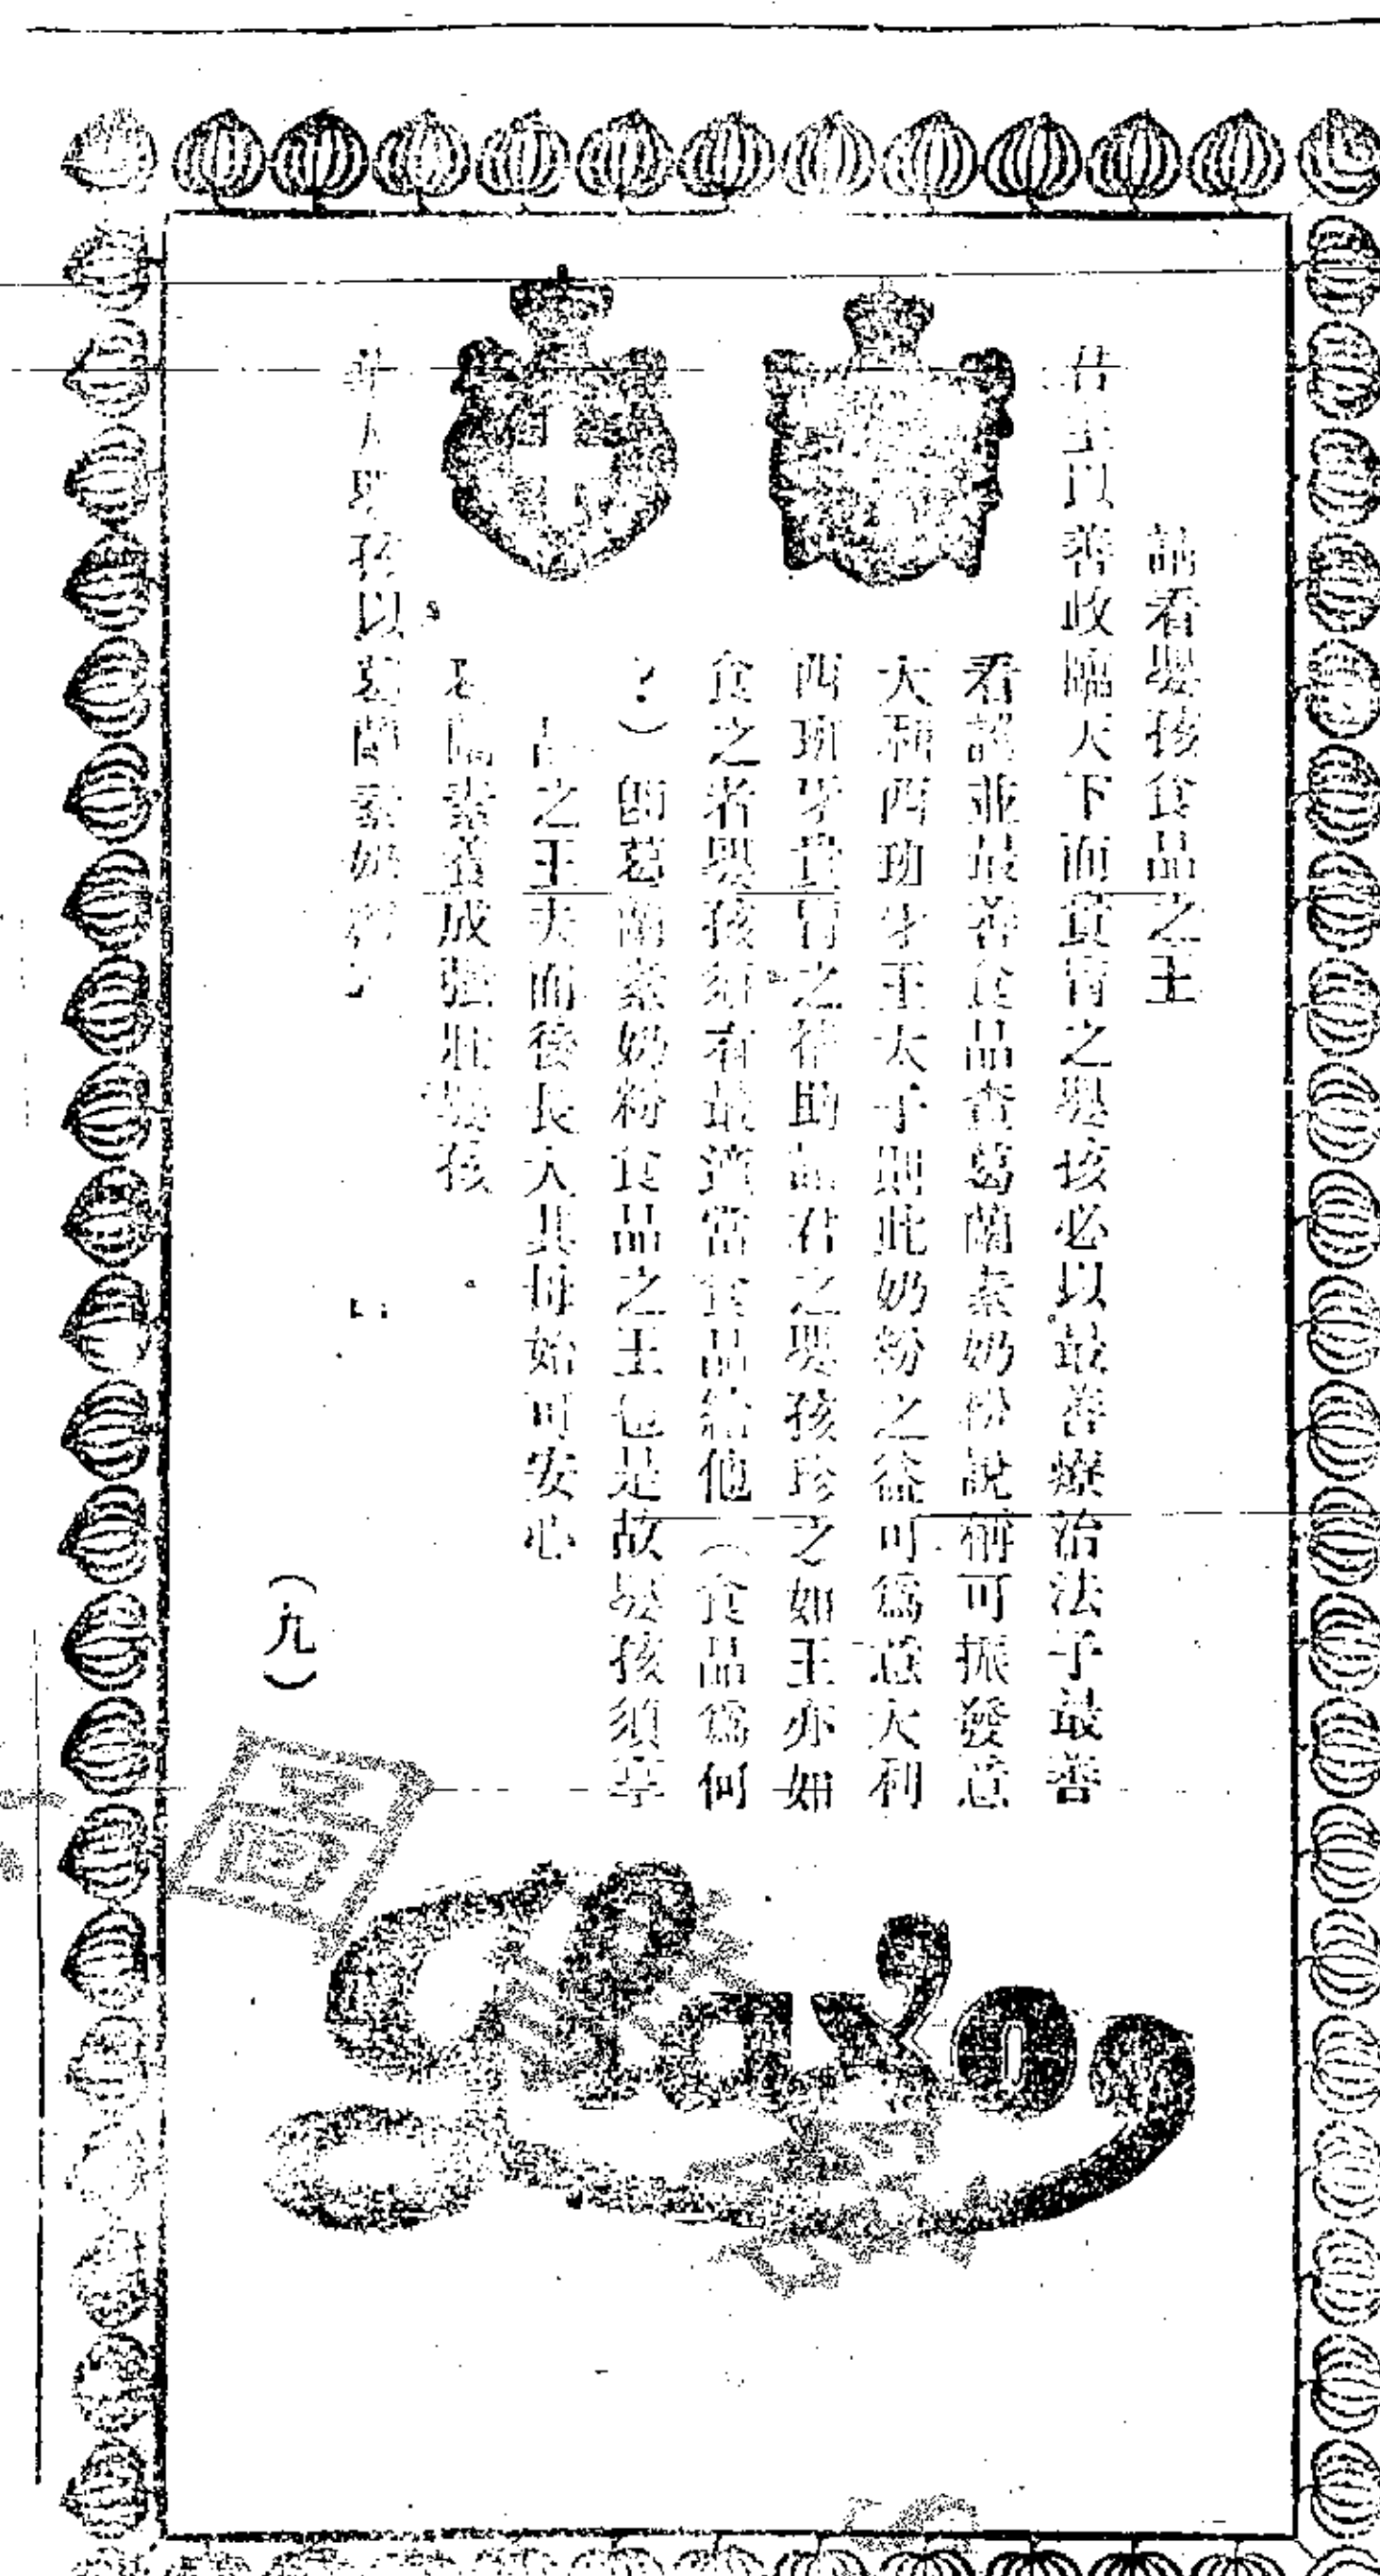 請看嬰孩食品之王
君主以善政臨天下而貴胄之嬰孩必以最善療治法子最善
看護並最善食品查葛蘭素奶粉說稱可振發意
大利西班牙王太子則此奶粉之益可為意大利
西班牙貴胄之補助品君之嬰孩珍之如王亦如
食之者嬰孩須有最適當食品給他（食品為何
？）即葛蘭素奶粉食品之王也是故嬰孩須享
品之王夫而後長大其母始可安心
葛蘭素養成強壯嬰孩
嬰孩以葛蘭素奶
（九）
Glaxo